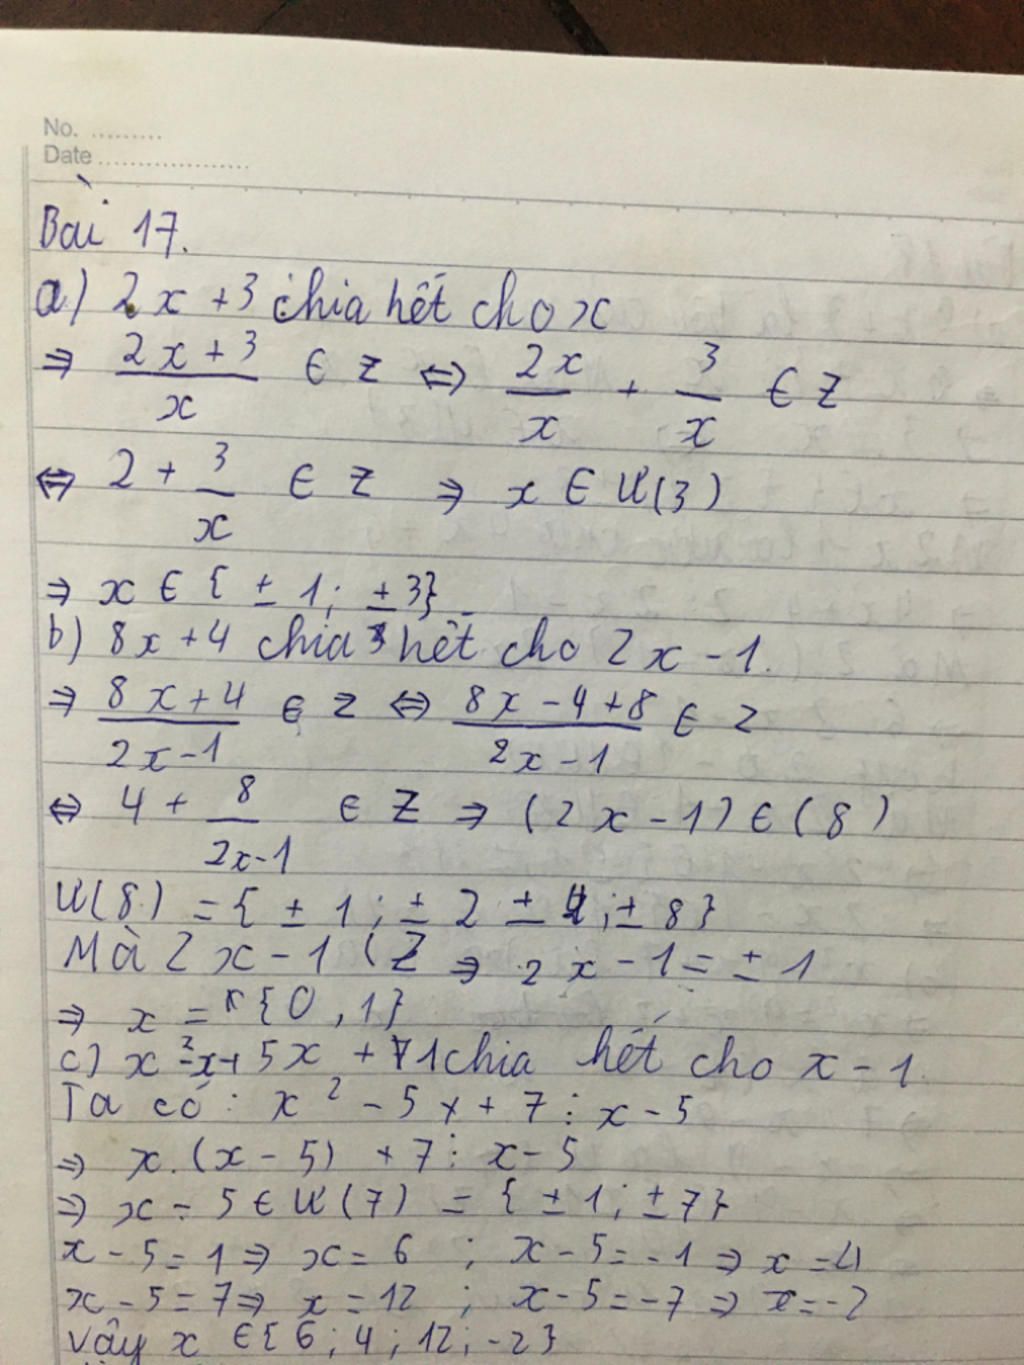 No. .........
Date ..................
Bài 17.
a) 2x + 3 chia hết cho x
⇒ (2x + 3)/x ∈ Z ⇔ 2x/x + 3/x ∈ Z
⇔ 2 + 3/x ∈ Z ⇒ x ∈ Ư(3)
⇒ x ∈ { ± 1; ± 3}
b) 8x + 4 chia hết cho 2x - 1.
⇒ (8x + 4)/(2x - 1) ∈ Z ⇔ (8x - 4 + 8)/(2x - 1) ∈ Z
⇔ 4 + 8/(2x - 1) ∈ Z ⇒ (2x - 1) ∈ (8)
Ư(8) = { ± 1; ± 2 ± 4; ± 8}
Mà 2x - 1 ( Z ⇒ 2x - 1 = ± 1
⇒ x = {0, 1}
c) x² 5x + 1 chia hết cho x - 1
Ta có: x² - 5x + 7 ⋮ x - 5
⇒ x.(x - 5) + 7 ⋮ x - 5
⇒ x - 5 ∈ Ư(7) = { ± 1; ± 7}
x - 5 = 1 ⇒ x = 6 ; x - 5 = -1 ⇒ x = 4
x - 5 = 7 ⇒ x = 12 ; x - 5 = -7 ⇒ x = -2
Vậy x ∈ {6; 4; 12; -2}